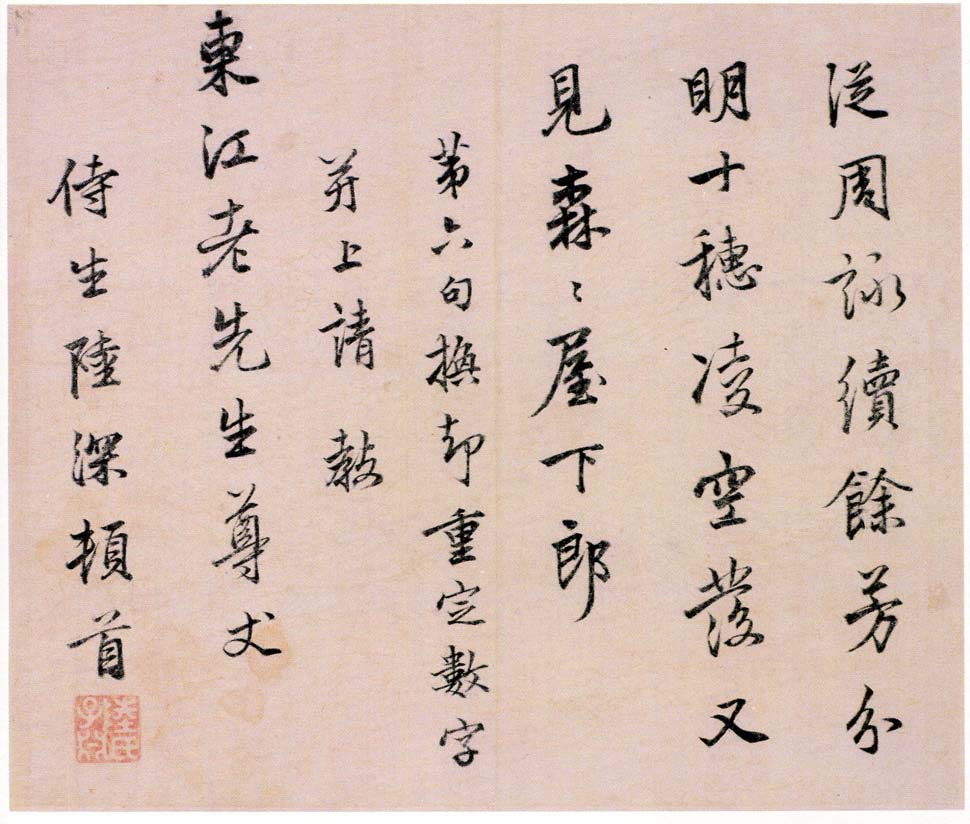 從周詠續餘芳分
明十穗凌空發又
見森〻屋下郎
第六句却重定數字
并上請 教
東江老先生尊丈
侍生陸深頓首
陸氏子淵